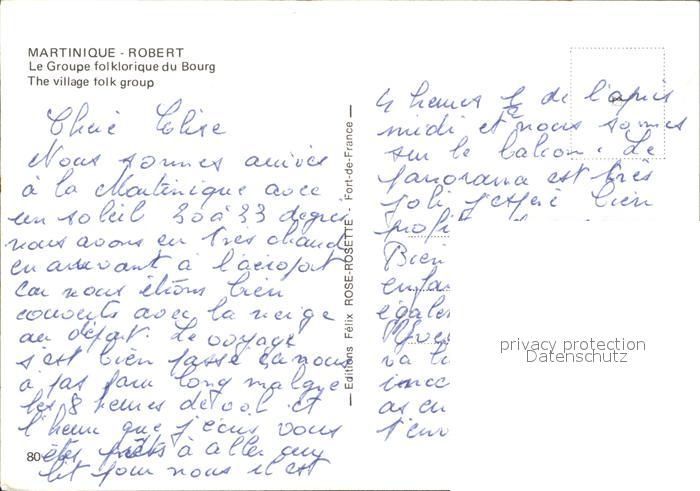 MARTINIQUE - ROBERT
Le Groupe folklorique du Bourg
The village folk group
Chère Elise
Nous sommes arrivés
à la Martinique avec
un soleil 30 à 33 degrés
nous avons eu très chaud
en arrivant à l'aéroport
car nous étions bien
couverts avec la neige
au départ. Le voyage
s'est bien passé ça nous
à pas paru long malgré
les 8 heures de vol et
l'heure que j'écris vous
êtes prêts à aller au
lit pour nous il est
80
Editions Félix ROSE-ROSETTE - Fort-de-France
4 heures ½ de l'après
midi et nous sommes
sur le balcon. Le
panorama est très
joli j'espère bien
profi
Bien
enfan
égale
va
as eu
t'env
privacy protection
Datenschutz